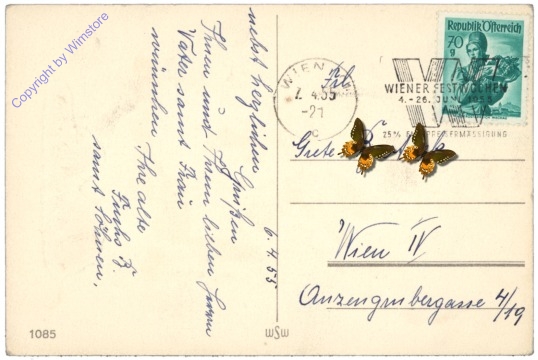 nebst herzlichen Grüßen
Ihnen und Ihrem lieben Herrn
Vater samt Frau
wünschen Ihre alte
Fuchs B.
samt Söhnen,
6.4.55
1085
WSW
WIEN
7. 4.55
-21
C
WIENER FESTWOCHEN
4.-26. JUNI 1955
25% ERMÄSSIGUNG
Republik Österreich
70 g
Grete
Wien IV
Anzengrubergasse 4/19
Copyright by Wimstore